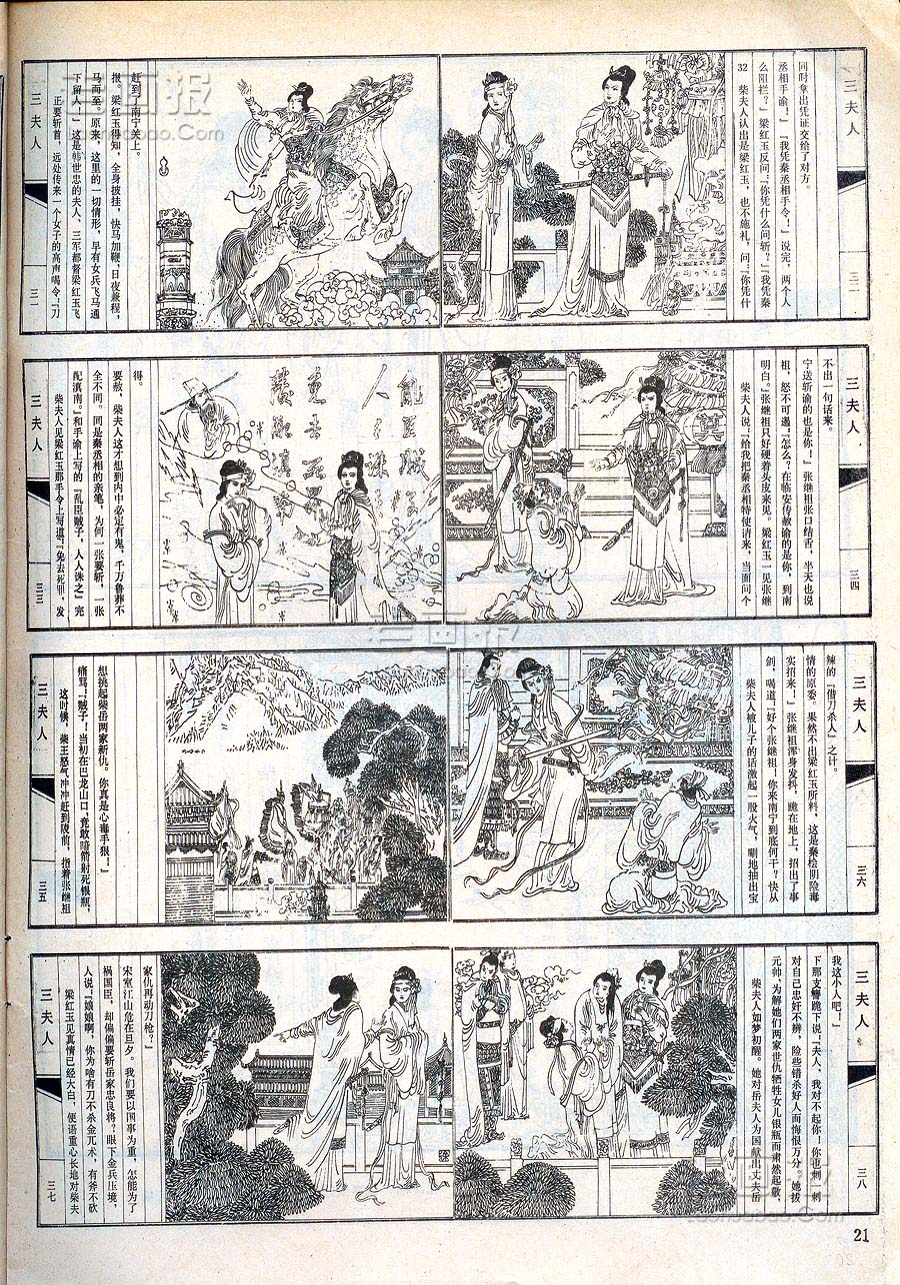 三夫人
三一
正要斩首，远处传来一个女子的高声喝令「刀
下留人！」这是韩世忠的夫人、三军都督梁红玉飞
马而至。原来，这里的一切情形，早有女兵飞马通
报。梁红玉得知，全身披挂，快马加鞭，日夜兼程，
赶到了南宁关上。
32 柴夫人认出是梁红玉，也不施礼，问：「你凭什
么阻拦？」梁红玉反问：「你凭什么问斩？」「我凭秦
丞相手谕！」「我凭秦丞相手令！」说完，两个人
同时拿出凭证交给了对方。
三夫人
三二
三夫人
三三
柴夫人见梁红玉那手令上写道：「免去死罪，发
配滇南。」和手谕上写的「乱臣贼子，人人诛之」完
全不同。同是秦丞相的亲笔，为何一张要斩，一张
要赦，柴夫人这才想到内中必定有鬼，千万鲁莽不
得。
乱臣贼子
人人诛之
免去死罪
发配滇南
柴夫人说：「给我把秦丞相特使请来，当面问个
明白。」张继祖只好硬着头皮来见。梁红玉一见张继
祖，怒不可遏：「怎么？在临安传赦谕的是你，到南
宁送斩谕的也是你！」张继祖张口结舌，半天也说
不出一句话来。
三夫人
三四
三夫人
三五
这时候，柴王怒气冲冲赶到陵前，指着张继祖
痛骂：「贼子！当初在巴龙山口，竟敢暗箭射死银瓶，
想挑起柴岳两家新仇。你真是心毒手狠！」
柴夫人被儿子的话激起一股火气，唰地抽出宝
剑，喝道：「好个张继祖！你来南宁到底何干？快从
实招来！」张继祖浑身发抖，跪在地上，招出了事
情的原委。果然不出梁红玉所料，这是秦桧阴险毒
辣的「借刀杀人」之计。
三夫人
三六
三夫人
三七
梁红玉见真情已经大白，便语重心长地对柴夫
人说：「娘娘啊，你为啥有刀不杀金兀术，有斧不砍
祸国臣，却偏偏要斩岳家忠良将？眼下金兵压境，
宋室江山危在旦夕。我们要以国事为重，怎能为了
家仇再动刀枪？」
柴夫人如梦初醒。她对岳夫人为国献出丈夫岳
元帅，为解她们两家世仇牺牲女儿银瓶而肃然起敬，
对自己忠奸不辨，险些错杀好人而悔恨万分。她拔
下那支簪跪下说：「夫人，我对不起你！你也刺一刺
我这小人吧！」
三夫人
三八
21